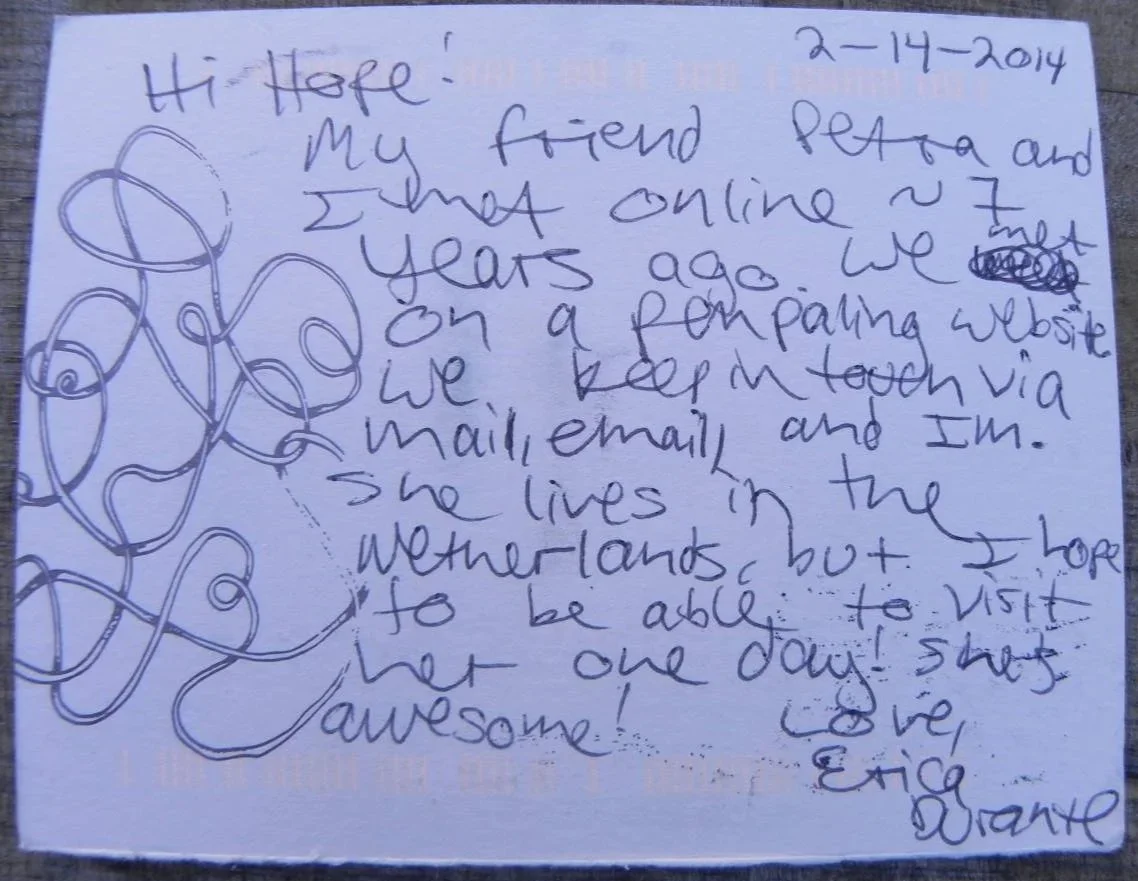 2-14-2014
Hi Hope!
My friend Petra and
I met online ~ 7
years ago. We met
on a penpaling website
we keep in touch via
mail, email, and IM.
She lives in the
Netherlands, but I hope
to be able to visit
her one day! She's
awesome! Love,
Erica
Durante